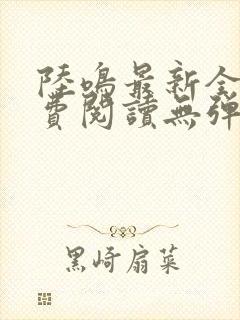 陸鳴最新全
費閱讀無彈
黑崎扇菜